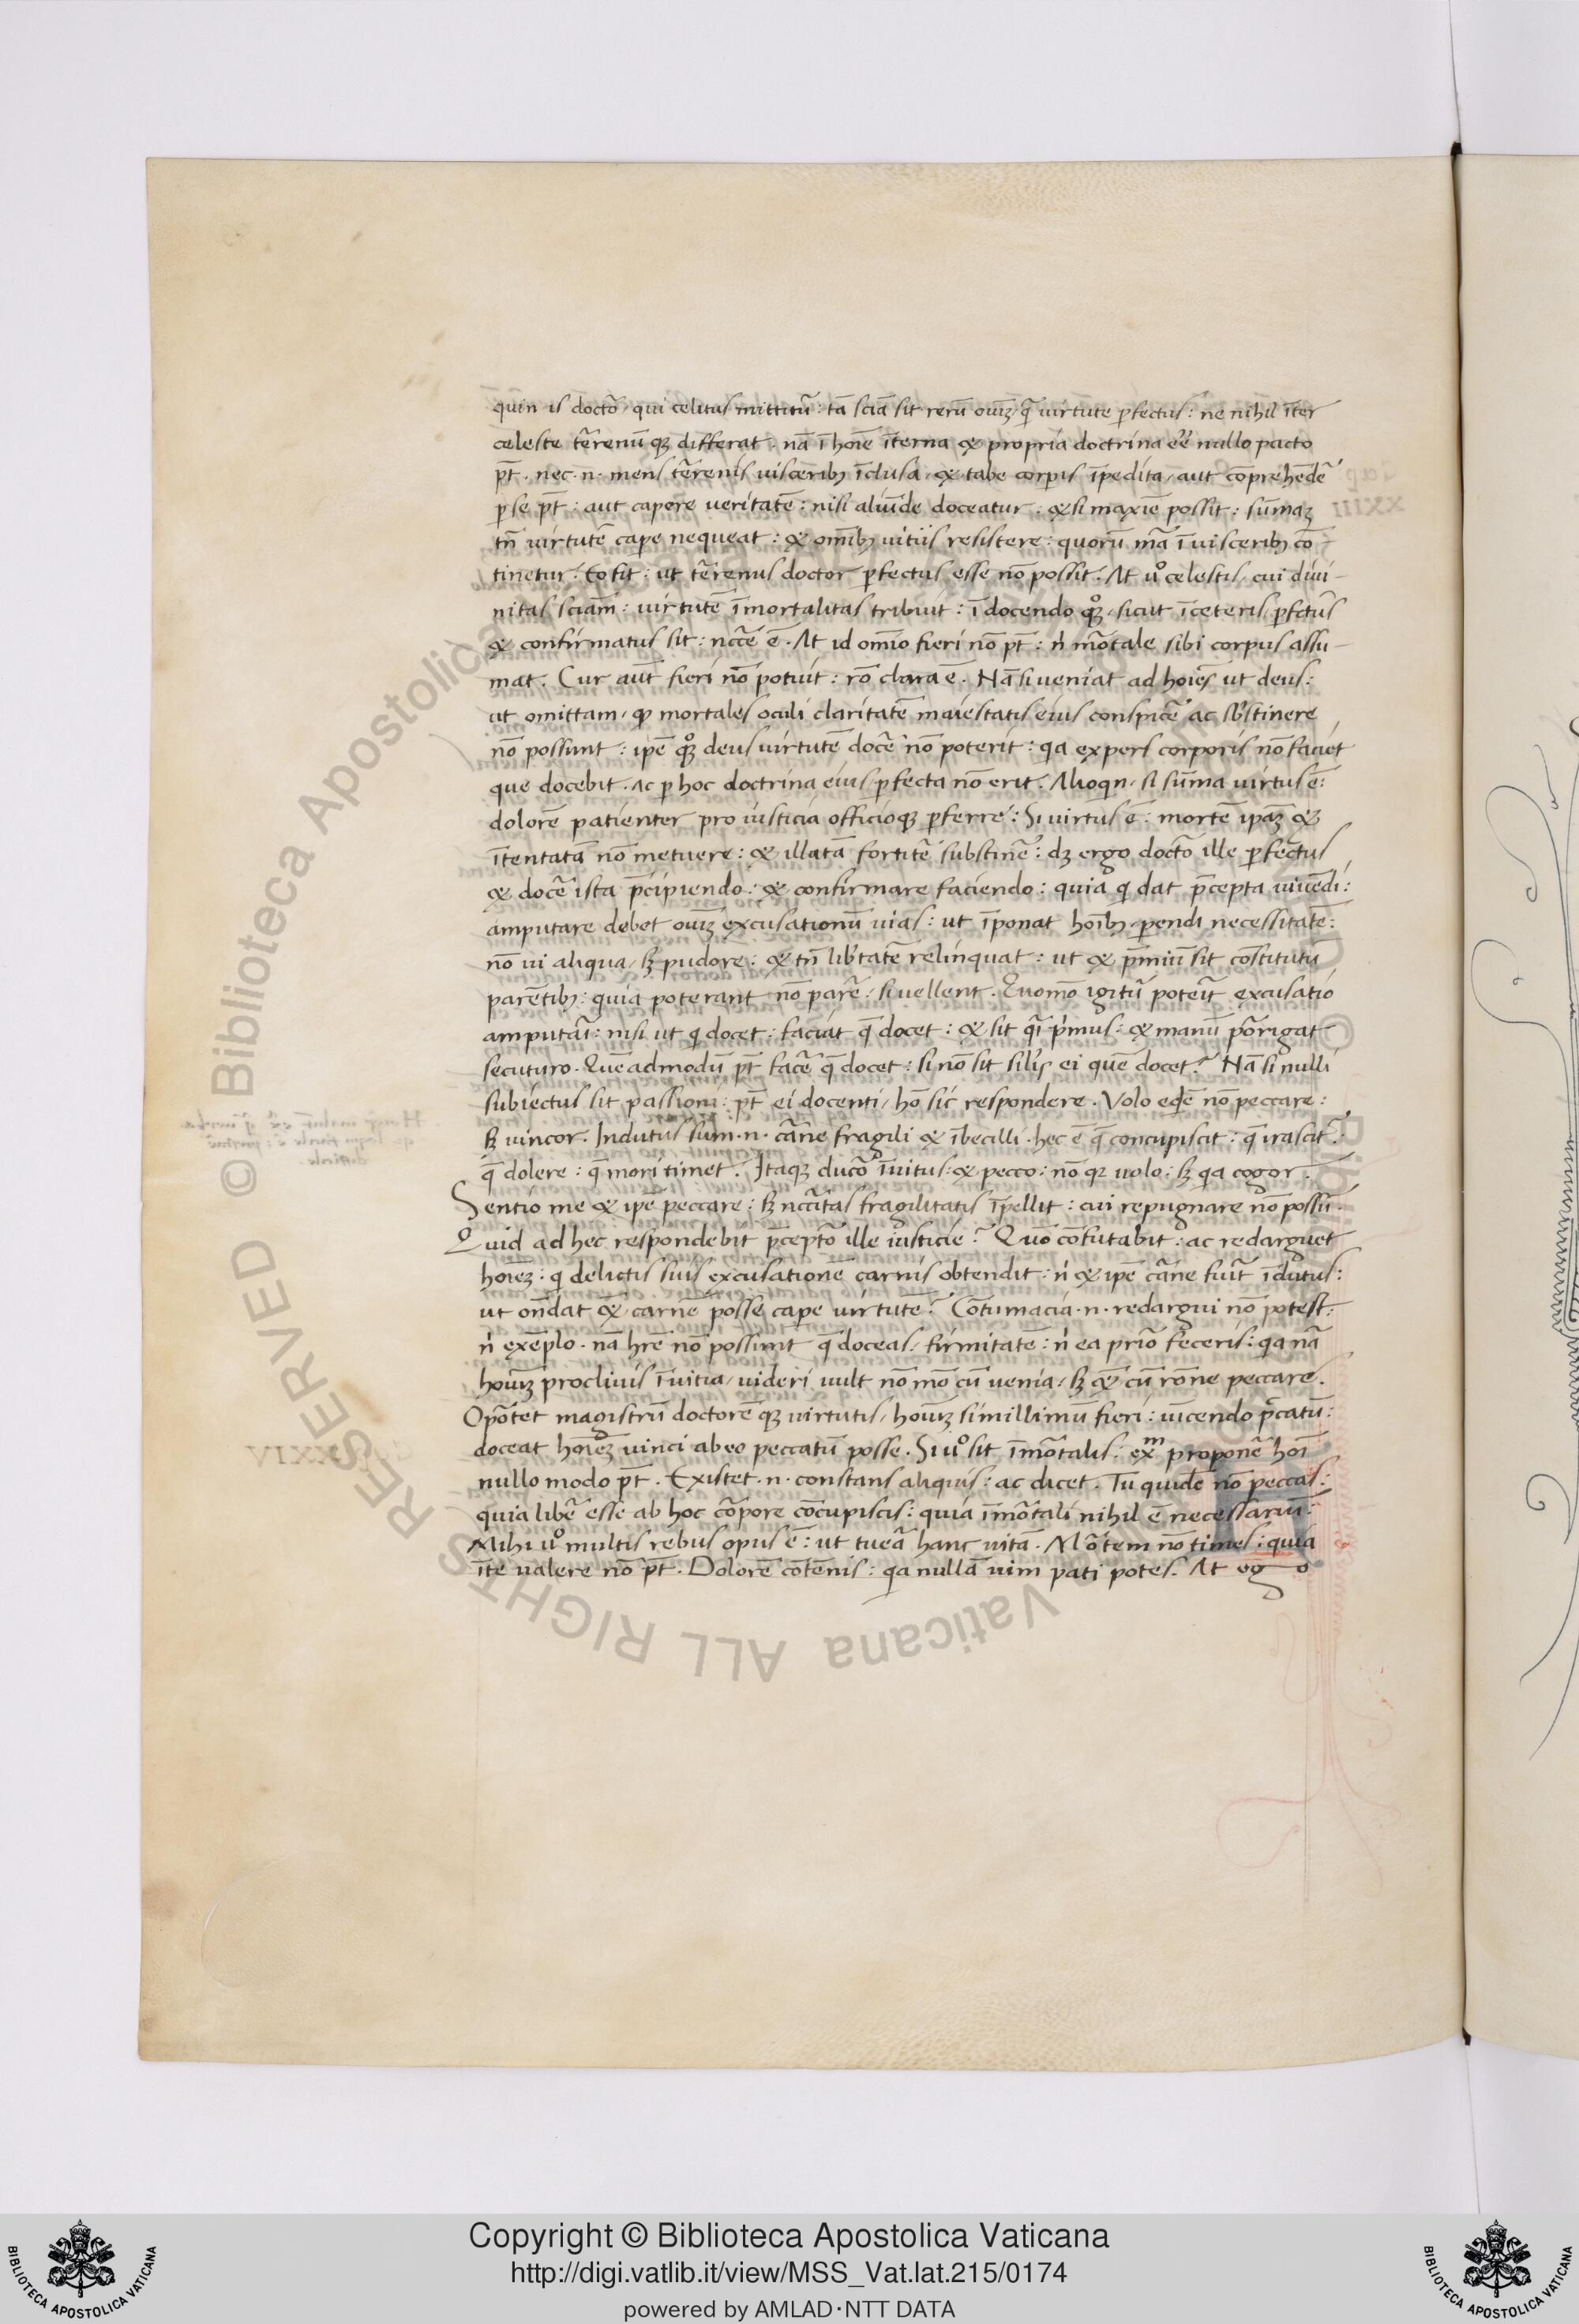 quin is docto᷑, qui celitus mittitu᷑: tā sciā sit rerū oīuꝫ, qᷓ virtute ꝑfectus: ne nihil īter
celeste t᷑renūqꝫ differat. nā ī hoīe īterna & propria doctrina eē nullo pacto
pt̄. nec .n. mens t᷑renis visceribꝫ īclusa, & tabe corꝑis īpedita, aut cōprehēde᷑
ꝑ se pt̄: aut capere veritatē: nisi aliūde doceatur. & si maxīe possit: sūmaꝫ
tn̄ virtutē capē nequeat: & omībꝫ vitiis resistere: quorū mā ī visceribꝫ cō-
tinetur. Eo fit: ut t᷑renus doctor ꝑfectus esse nō possit. At uͦ celestis, cui divi-
nitas sciam̄: virtutē īmortalitas tribuit: ī docendo qͦꝫ, sicut ī ceteris, ꝑfctūs
& confirmatus sit: nccē ē. At id omīo fieri nō pt̄: nͥ mo᷑tale sibi corpus assu-
mat. Cur aut̄ fieri nō potuit: rō clara ē. Nā si veniat ad hoīes ut deus:
ut omittam, ꝙ mortales oculi claritatē maiestatis eius conspice᷑ ac sb᷒stinere
nō possunt: ipē qͦꝫ deus virtutē doce᷑ nō poterit: qa expers corporis nō faciet
que docebit. ac ꝑ hoc doctrina eius ꝑfecta nō erit. Alioqn, si sūma virtus ē:
dolorē patienter pro iusticia officioqꝫ ꝑferre: Si virtus ē: mortē ipāꝫ &
ītentatā nō metuere: & illatā fortite᷑ substine᷑: dꝫ ergo docto᷑ ille ꝑfectus
& doce᷑ ista p̄cipiendo: & confirmare faciendo: quia q dat p̄cepta vivēdi:
amputare debet oīuꝫ excusationū vias: ut īponat hoībꝫ, ꝑendi necessitatē:
nō vi aliqua, sꝫ pudore: & tn̄ lib᷑tatē relinquat: ut & p̄miū sit cōstitutū
parētibꝫ: quia poterant nō pare᷑, si vellent. Quomō igitu᷑ poteīt excusatio
amputa᷑i: nisi ut q docet: faciat q̄ docet: & sit qi pͥmus: & manū po᷑rigat
secuturo. Quēadmodū pt̄ face᷑ q̄ docet: si nō sit silis ei quē docet? Nā si nulli
subiectus sit passioni: pt̄ ei docenti, hō sic respondere. Volo eqdē nō peccare:
sꝫ vincor. Indutus sum .n. ca᷑ne fragili & ībecilli. hec ē q̄ concupiscit: q̄ irascit᷑:
q̄ dolere: q̄ mori timet. Itaqꝫ duco᷑ īvitus: & pecco: nō qꝛ volo: sꝫ qa cogor.
Sentio me & ipē peccare: sꝫ nccītas fragilitatis īpellit: cui repugnare nō possū.
Quid ad hec respondebit p̄cepto᷑ ille iusticie? Quō cōfutabit: ac redarguet
hoīeꝫ: q delictis suis excusationē carnis obtendit: nͥ & ipē ca᷑ne fuīt īdutus:
ut on̄dat &̄ carnē posse capē virtutē? Cōtumacia .n. redargui nō potest:
nͥ exēplo. nā hrē nō possunt q̄ doceas, firmitatē: nͥ ea prio᷑ feceris: qa nā
hoīuꝫ proclivis ī vitia, videri vult nō mō cū venia, sꝫ &̄ cū rōne peccare.
Opo᷑tet magistrū doctorēqꝫ virtutis, hoīuꝫ simillimū fieri: vīcendo p̄catū:
doceat hoīeꝫ vinci ab eo peccatū posse. Si uͦ sit īmo᷑talis: exᵐ propone᷑ hoī
nullo modo pt̄. Existet .n. constans aliquis: ac dicet. Tu quidē nō peccas:
quia libe᷑ esse ab hoc co᷑pore cōcupiscis: quia īmo᷑tali nihil ē necessariū:
Mihi uͦ multis rebus opus ē: ut tuea᷑ hanc vitā. Mo᷑tem nō times: quia
ī te valere nō pt̄. Dolorē cōtēnis: qa nullā vim pati potes. At ego
Copyright © Biblioteca Apostolica Vaticana
http://digi.vatlib.it/view/MSS_Vat.lat.215/0174
powered by AMLAD·NTT DATA
BIBLIOTECA APOSTOLICA VATICANA
BIBLIOTECA APOSTOLICA VATICANA
© Biblioteca Apostolica Vaticana ALL RIGHTS RESERVED